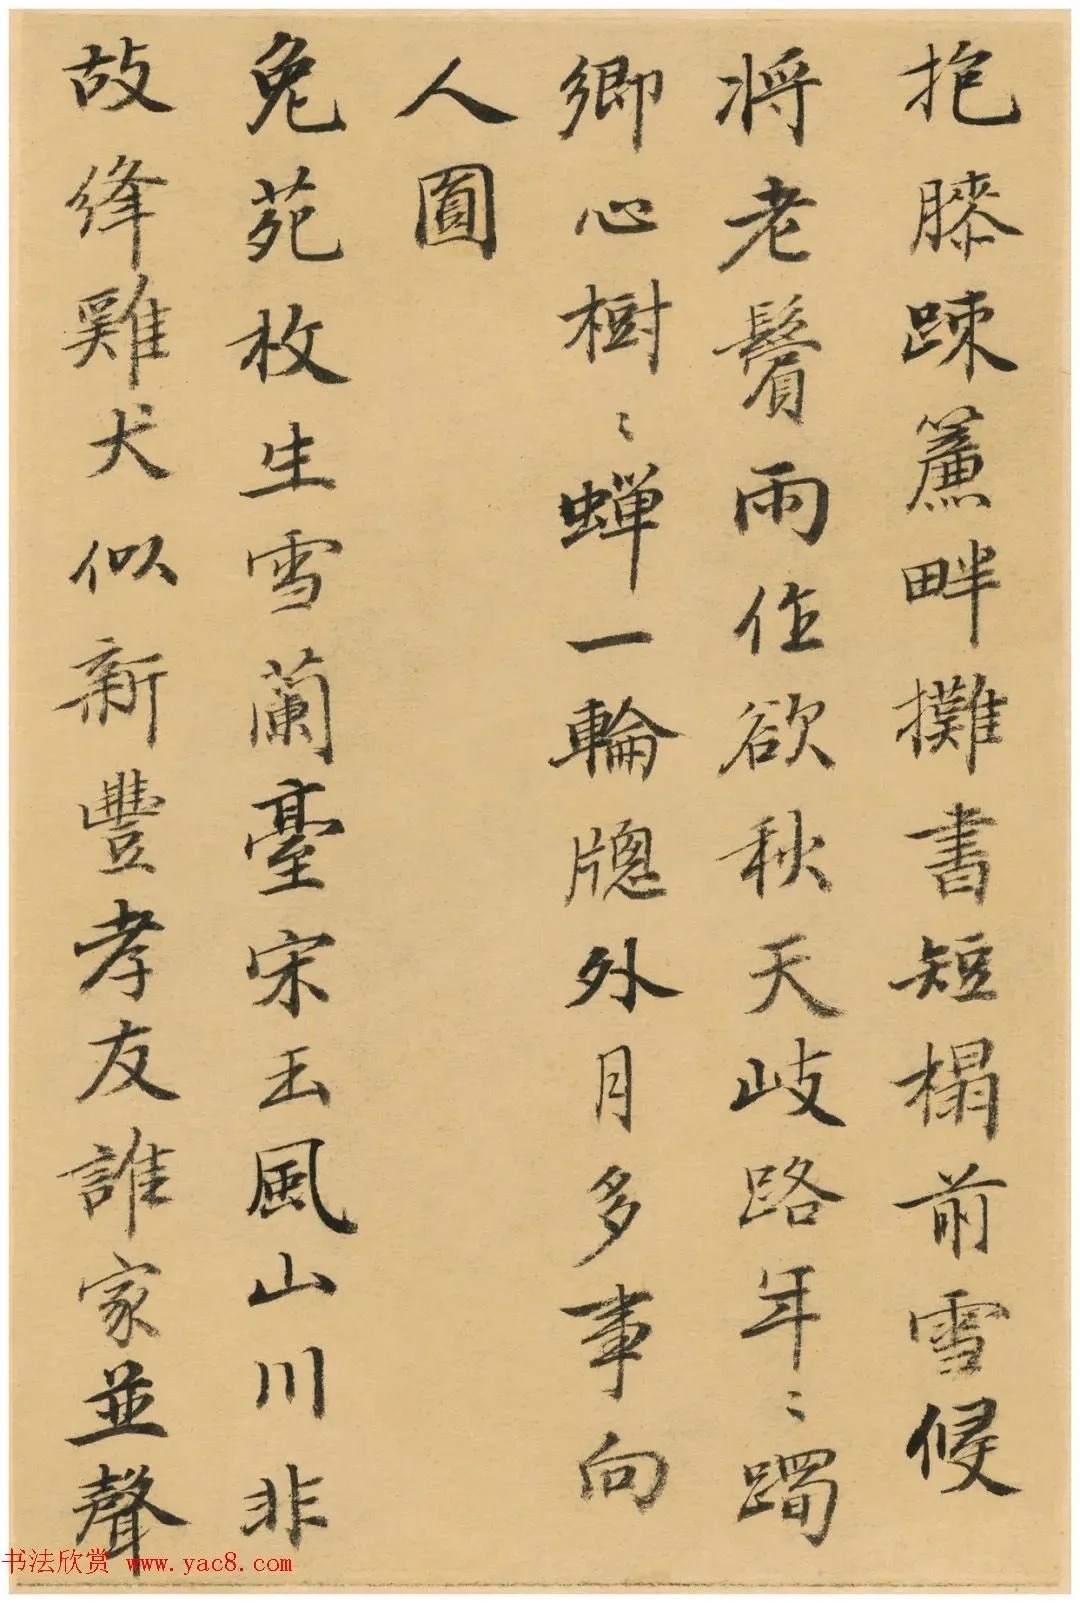 抱膝踈簾畔攤書短榻前雪侵
将老鬢雨作欲秋天歧路年〻躅
鄉心樹〻蟬一輪牕外月多事向
人圓
兔苑枚生雪蘭臺宋玉風山川非
故絳雞犬似新豐孝友誰家並聲
书法欣赏 www.yac8.com